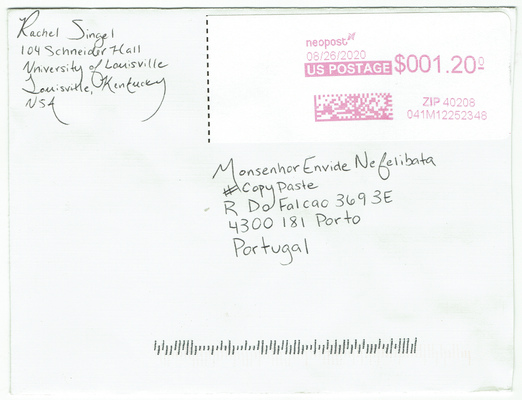 Rachel Singel
104 Schneider Hall
University of Louisville
Louisville, Kentucky
USA
neopost
08/26/2020
US POSTAGE $001.20⁰
ZIP 40208
041M12252348
Monsenhor Envide Nefelibata
#Copy Paste
R Do Falcao 369 3E
4300 181 Porto
Portugal